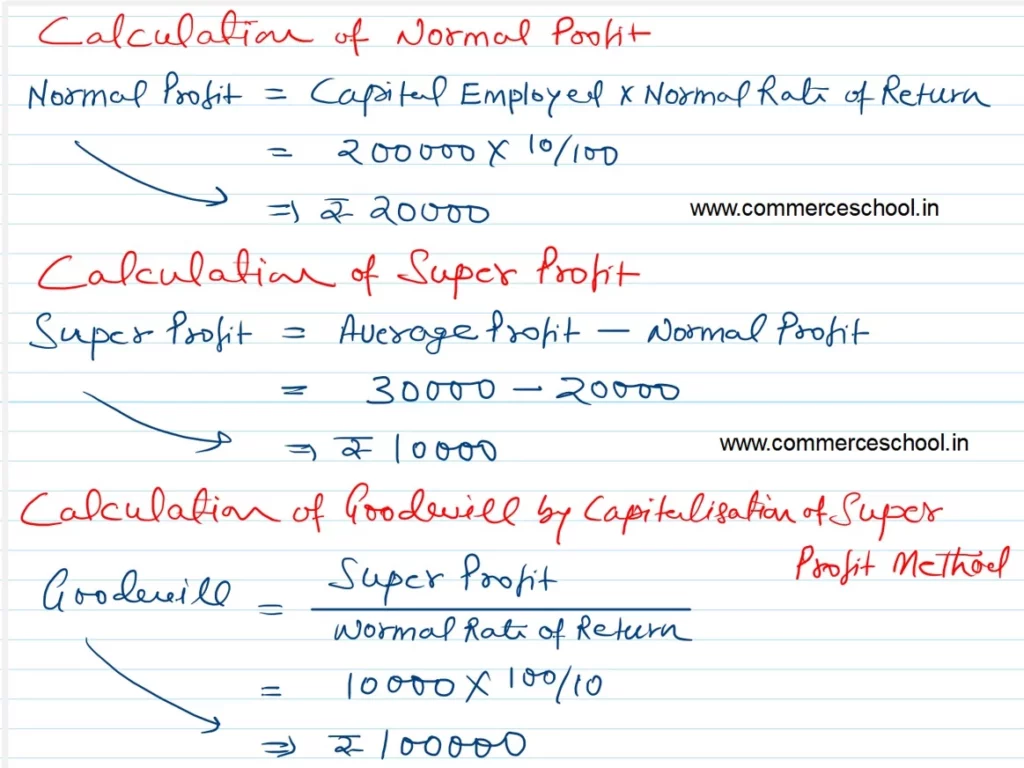 Calculation of Normal Profit
Normal Profit = Capital Employed x Normal Rate of Return
= 200000 x 10/100
⇒ ₹ 20000
www.commerceschool.in
Calculation of Super Profit
Super Profit = Average Profit - Normal Profit
= 30000 - 20000
⇒ ₹ 10000
www.commerceschool.in
Calculation of Goodwill by Capitalisation of Super
Profit Method
Goodwill = Super Profit
Normal Rate of Return
= 10000 x 100/10
⇒ ₹ 100000